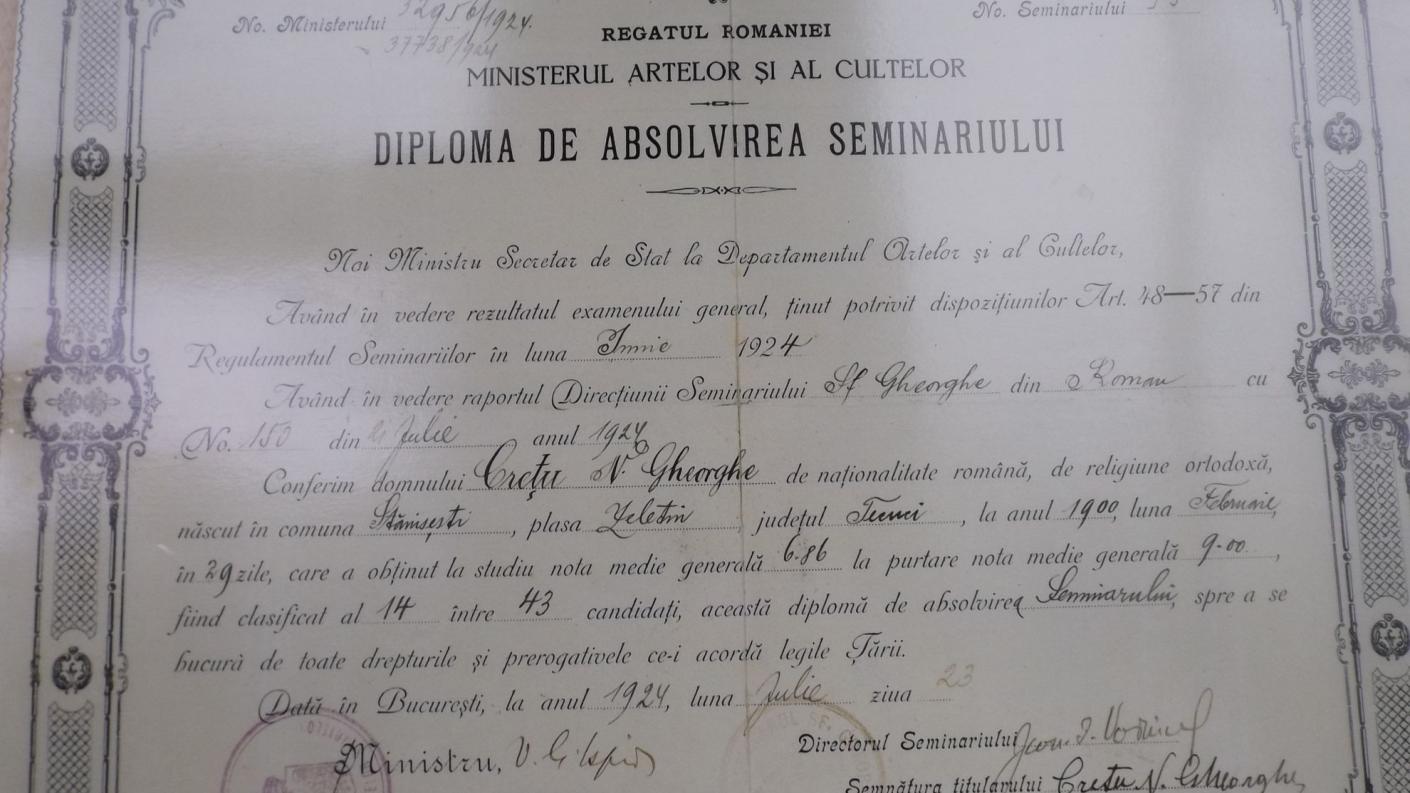 No. Ministerului 32956/1924.
37738/924
No. Seminariului
REGATUL ROMANIEI
MINISTERUL ARTELOR ȘI AL CULTELOR
DIPLOMA DE ABSOLVIREA SEMINARIULUI
Noi Ministru Secretar de Stat la Departamentul Artelor și al Cultelor,
Având în vedere rezultatul examenului general, ținut potrivit dispozițiunilor Art. 48—57 din
Regulamentul Seminariilor în luna Iunie 1924
Având în vedere raportul Direcțiunii Seminariului Sf Gheorghe din Roman cu
No. 150 din Julie anul 1924
Conferim domnului Crețu N. Gheorghe de naționalitate română, de religiune ortodoxă,
născut în comuna Stănisești, plasa Zeletin, județul Tecuci, la anul 1900, luna Februarie,
în 29 zile, care a obținut la studiu nota medie generală 6.86 la purtare nota medie generală 9.00,
fiind clasificat al 14 între 43 candidați, această diplomă de absolvirea Seminarului, spre a se
bucura de toate drepturile și prerogativele ce-i acordă legile Țării.
Dată în București, la anul 1924, luna Julie ziua 23
Ministru,
Directorul Seminariului
Semnătura titularului Crețu N. Gheorghe